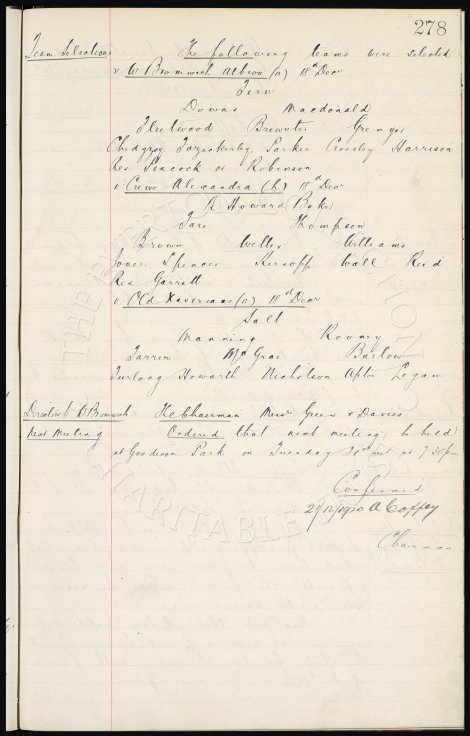 278
Team Selections The following teams were selected
v W Bromwich Albion (a) 18th Decr
Fern
Downs Macdonald
Fleetwood Brewster Grenyer
Chedgzoy Fazackerley Parker Crossley Harrison
Res. Peacock or Robinson
v Crewe Alexandra (h) 18th Decr
R Howard Baker
Fare Thompson
Brown Weller Williams
Jones Spencer Kirsopp Wall Reid
Res Garrett
v Old Xaverians (a) 18th Decr
Salt
Manning Rooney
Farren McGrae Barlow
Furlong Howarth Nicholson Upton Logan
Director to W Bromwich The Chairman Messrs Green & Davies
Next Meeting Ordered that next meeting be held
at Goodison Park on Tuesday 21st inst at 7.30pm
Confirmed
21/12/1920 A Coffey
Chairman
THE EVERTON COLLECTION
CHARITABLE